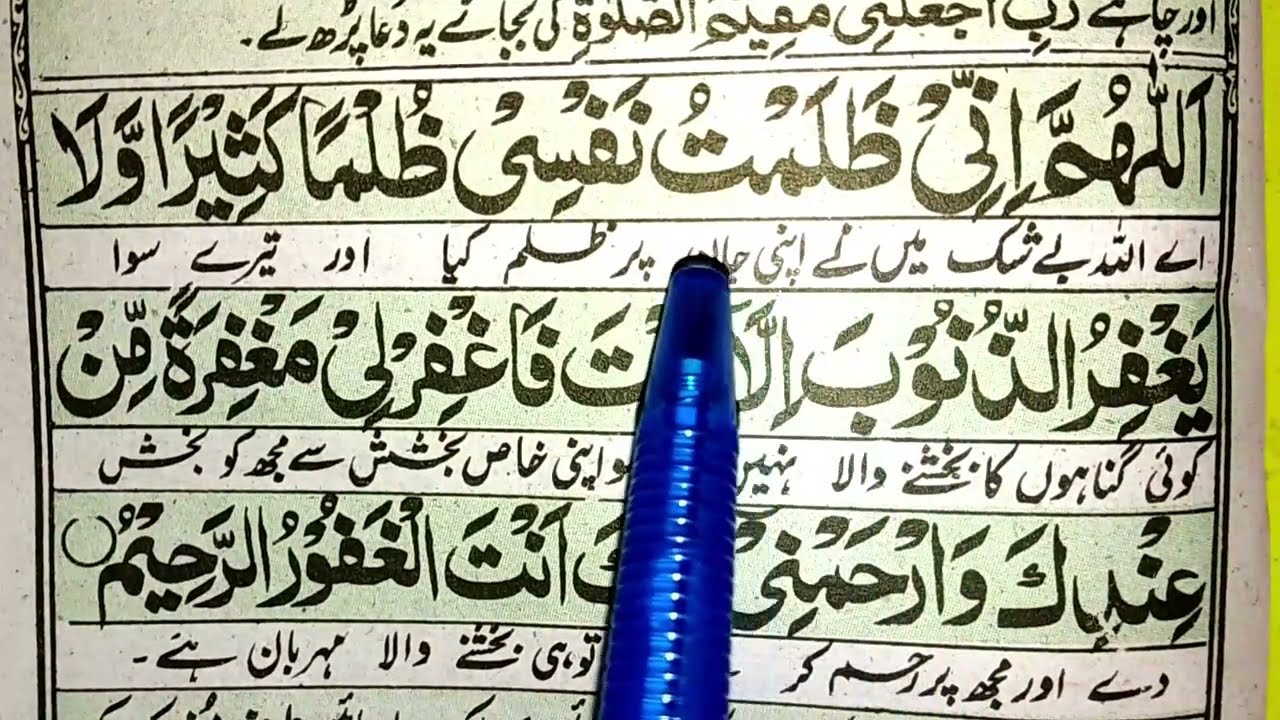 اور چاہے رَبِّ اجْعَلْنِیْ مُقِیْمَ الصَّلٰوةِ کی بجائے یہ دعا پڑھ لے۔
اَللّٰهُمَّ اِنِّیْ ظَلَمْتُ نَفْسِیْ ظُلْمًا کَثِیْرًا وَّلَا
اے اللہ بےشک میں نے اپنی پر ظلم کیا اور تیرے سوا
یَغْفِرُ الذُّنُوْبَ اِلَّا فَاغْفِرْلِیْ مَغْفِرَةً مِّنْ
کوئی گناہوں کا بخشنے والا نہیں اپنی خاص بخشش سے مجھ کو بخش
عِنْدِكَ وَارْحَمْنِیْ اَنْتَ الْغَفُوْرُ الرَّحِیْمُ
دے اور مجھ پر رحم کر تو ہی بخشنے والا مہربان ہے۔